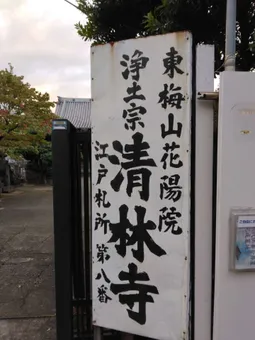 東梅山花陽院
浄土宗清林寺
江戸札所第八番